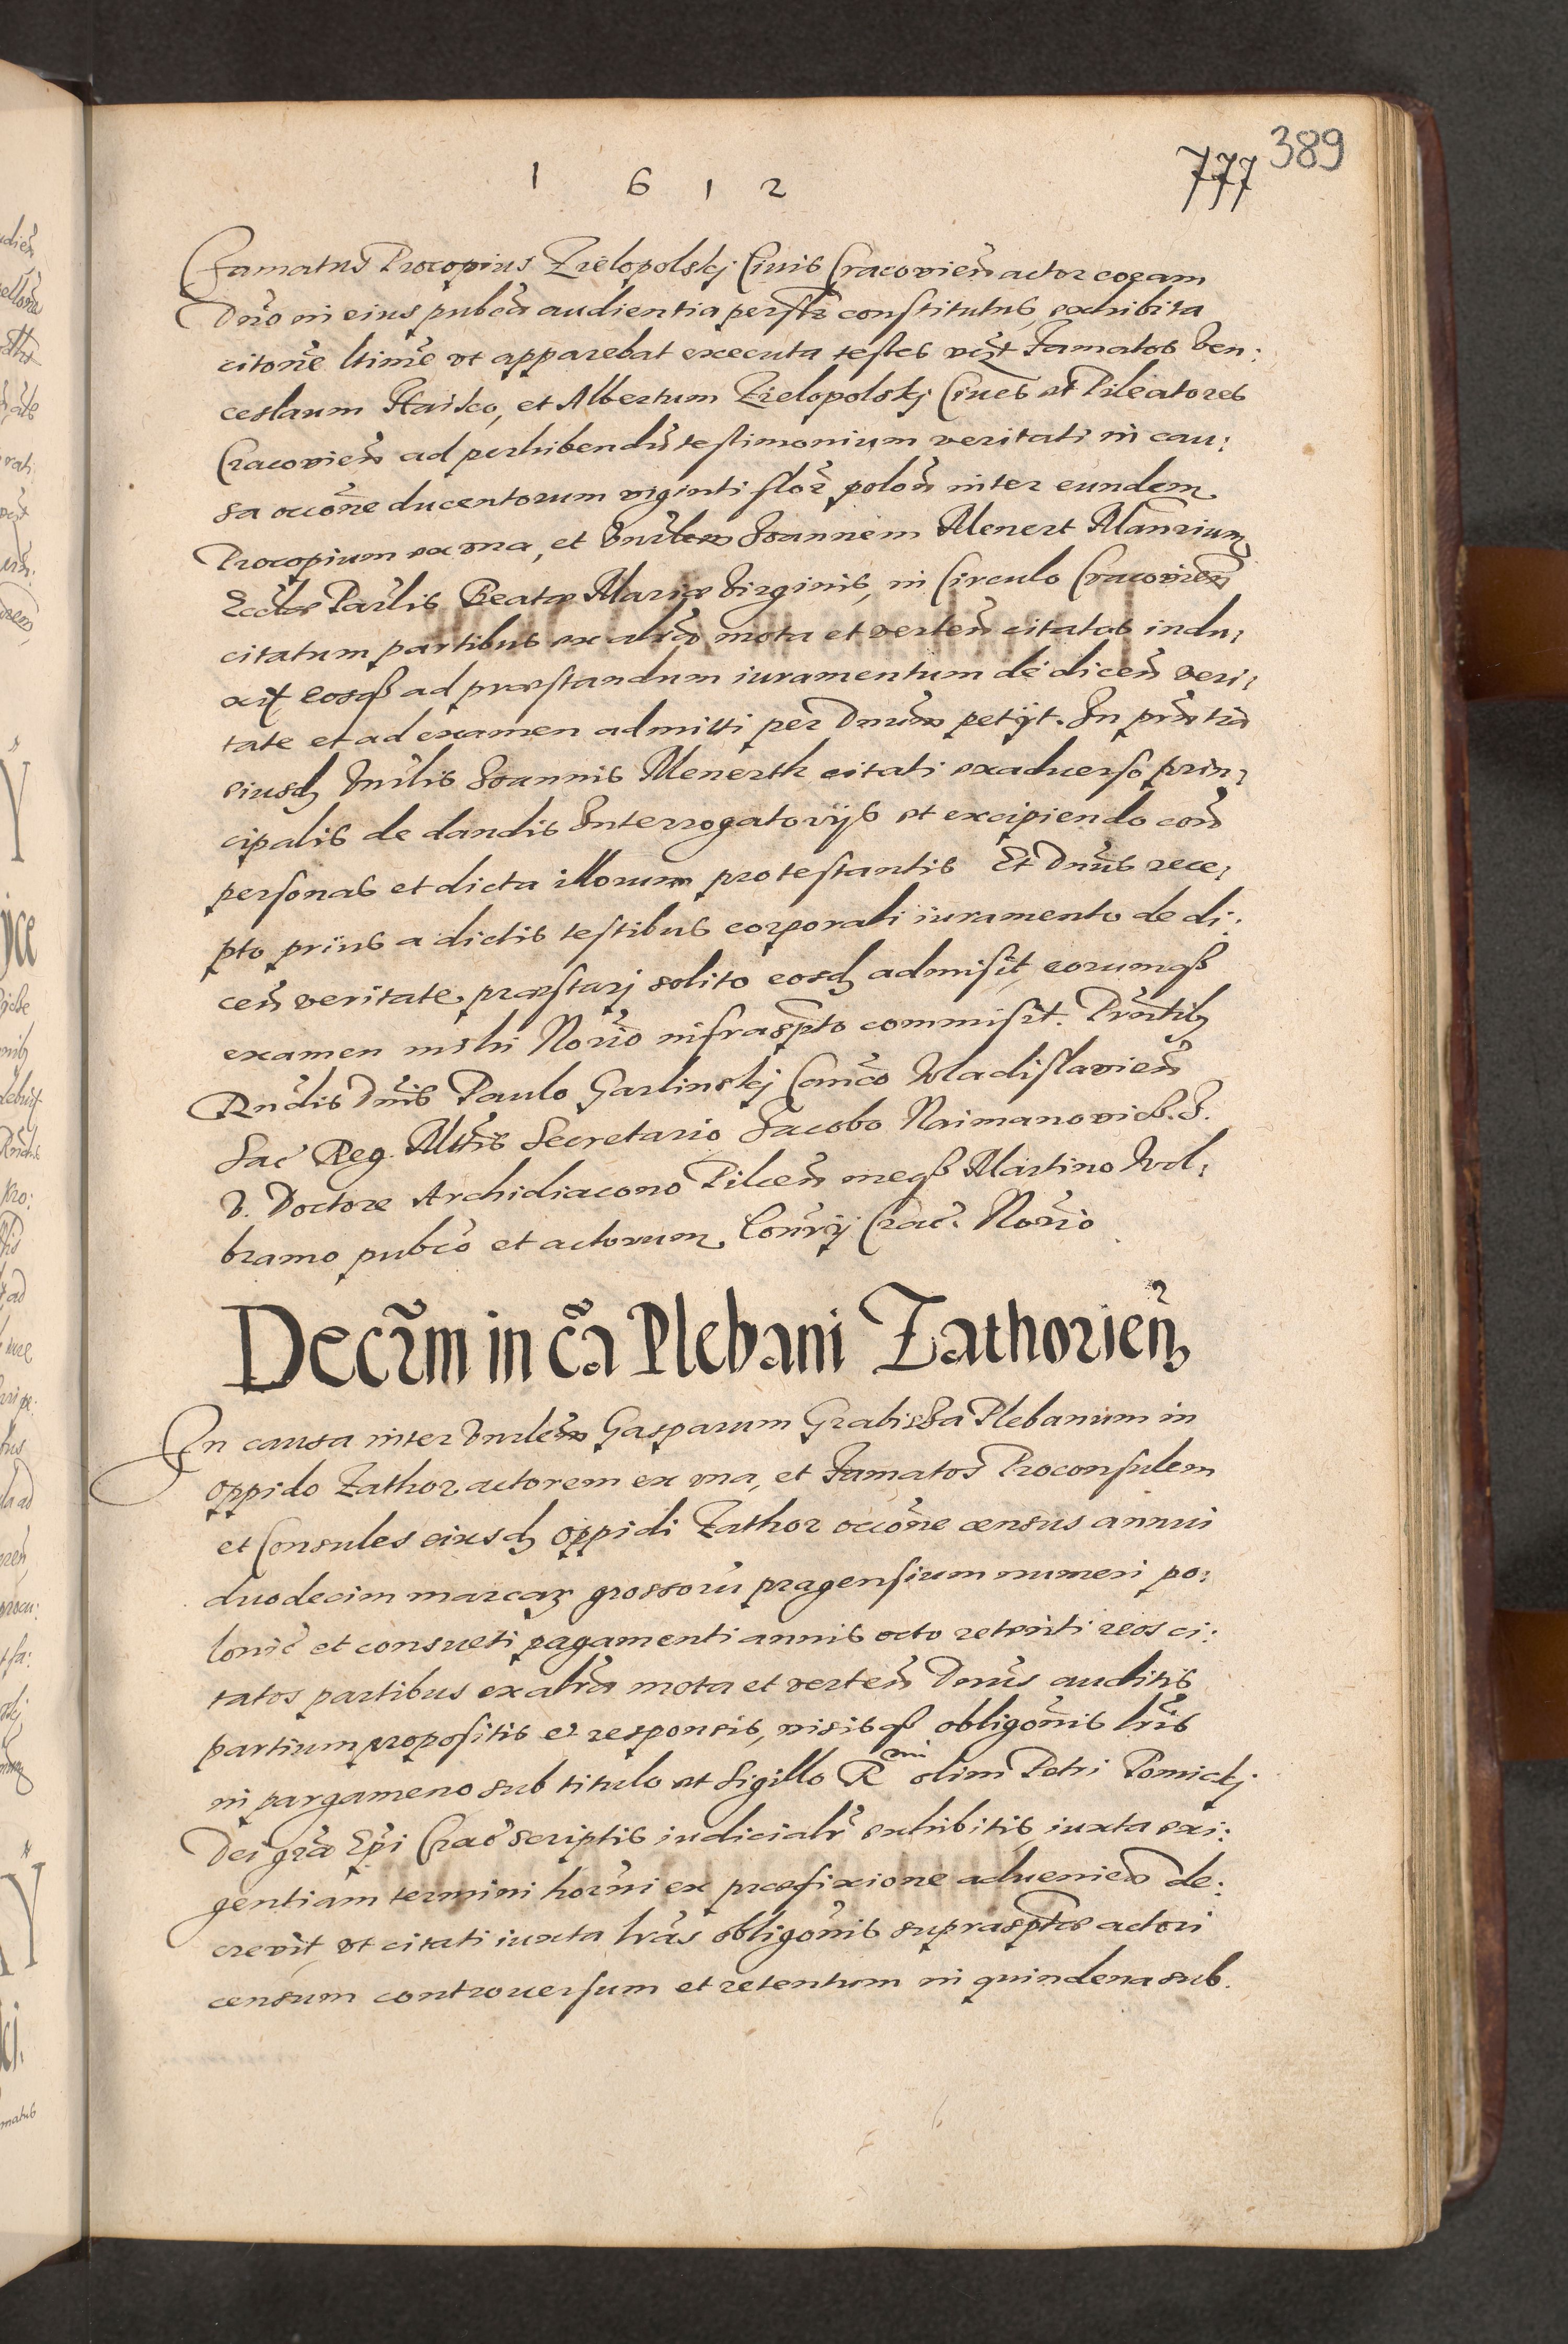 389
777
1 6 1 2
Famatus Procopius Zielopolskj Ciuis Cracovien̄ actor coram
Dn̄o in eius pub̄ca audientia perslr̄ constitutus, exhibita
citōne ltīme vt apparebat executa testes vi͠zt Famatos Ven:
ceslaum Haisco, et Albertum Zielopolskj Ciues et Pileatores
Cracovien̄ ad perhibendū testimonium veritati in cau:
sa occōne ducentorum viginti flor̄ polon̄ inter eundem
Procopium ex vna, et Vnrl̄em Joannem Menert Mansium
Eccl̄æ Parl̄is Beatæ Mariæ Virginis, in Circulo Cracovien̄
citatum partibus ex alr̄a mota et verten̄ citatos indu:
xit eosq̄ ad præstandum iuramentum de dicen̄ veri:
tate et ad examen admitti per Dnūm petijt. In pn̄tia
eiusd̄ Vnrl̄is Joannis Menerth citati ex aduerso prin:
cipalis de dandis Interrogatorijs et excipiendo con̄
personas et dicta illorum protestantis Et Dnūs rece:
pto prius a dictis testibus corporali iuramento de di:
cen̄ veritate præstarj solito eosd̄ admisit, eorumq̄
examen mihi Nor̄io infrasp̄to commisit. Pn̄tib̄
Rn̄dis Dn̄is Paulo Garlinskj Can̄co Wladislavien̄
Sac̄ Reg. Mt̄is Secretario Jacobo Naimanovicz J.
V. Doctore Archidiacono Pilcen̄ meq̄ Martino Wol:
bramo pub̄co et actorum Con̄rij Crac̄. Nor̄io
Decr̄m in c̄a Plebani Zathorien̄
In causa inter Vnrl̄em Gasparum Grabissa Plebanum in
oppido Zathor actorem ex vna, et Famatos Proconsulem
et Consules eiusd̄ oppidi Zathor occōne census annui
duodecim marcaꝝ grossorū pragensium numeri po:
lonic̄ et consueti pagamenti annis octo retenti reos ci:
tatos partibus ex alr̄a mota et verten̄ Dnūs auditis
partium propositis et responsis, visisq̄ obligōnis lr̄is
in pargameno sub titulo et Sigillo Rmi olim Petri Tomickj
Dei gr̄a Ep̄i Crac̄ scriptis iudicialr̄ exhibitis, iuxta exi:
gentiam termini hor̄ni ex præfixione aduenien̄ de:
crevit, vt citati iuxta lr̄as obligōnis suprasp̄tas actori
censum controuersum et retentum in quindena sub